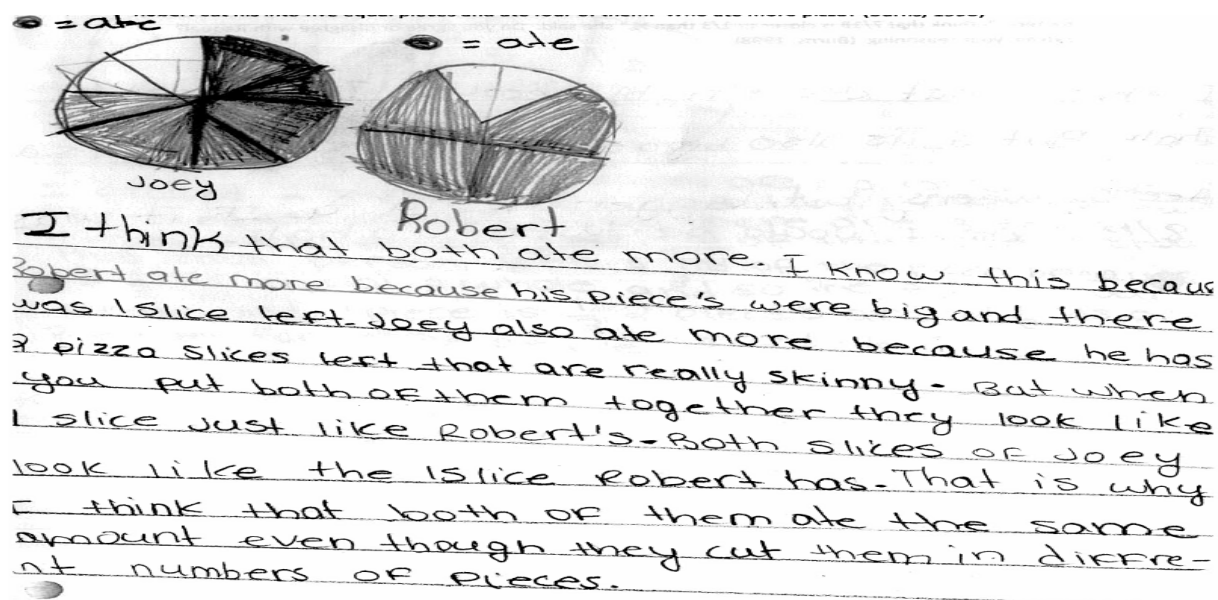 = ate
= ate
Joey
Robert
I think that both ate more. I know this becaus
Robert ate more because his piece's were big and there
was 1 slice left. Joey also ate more because he has
2 pizza slices left that are really skinny. But when
you put both of them together they look like
1 slice just like Robert's. Both slices of Joey
look like the 1 slice Robert has. That is why
I think that both of them ate the same
amount even though they cut them in diffre-
nt numbers of pieces.